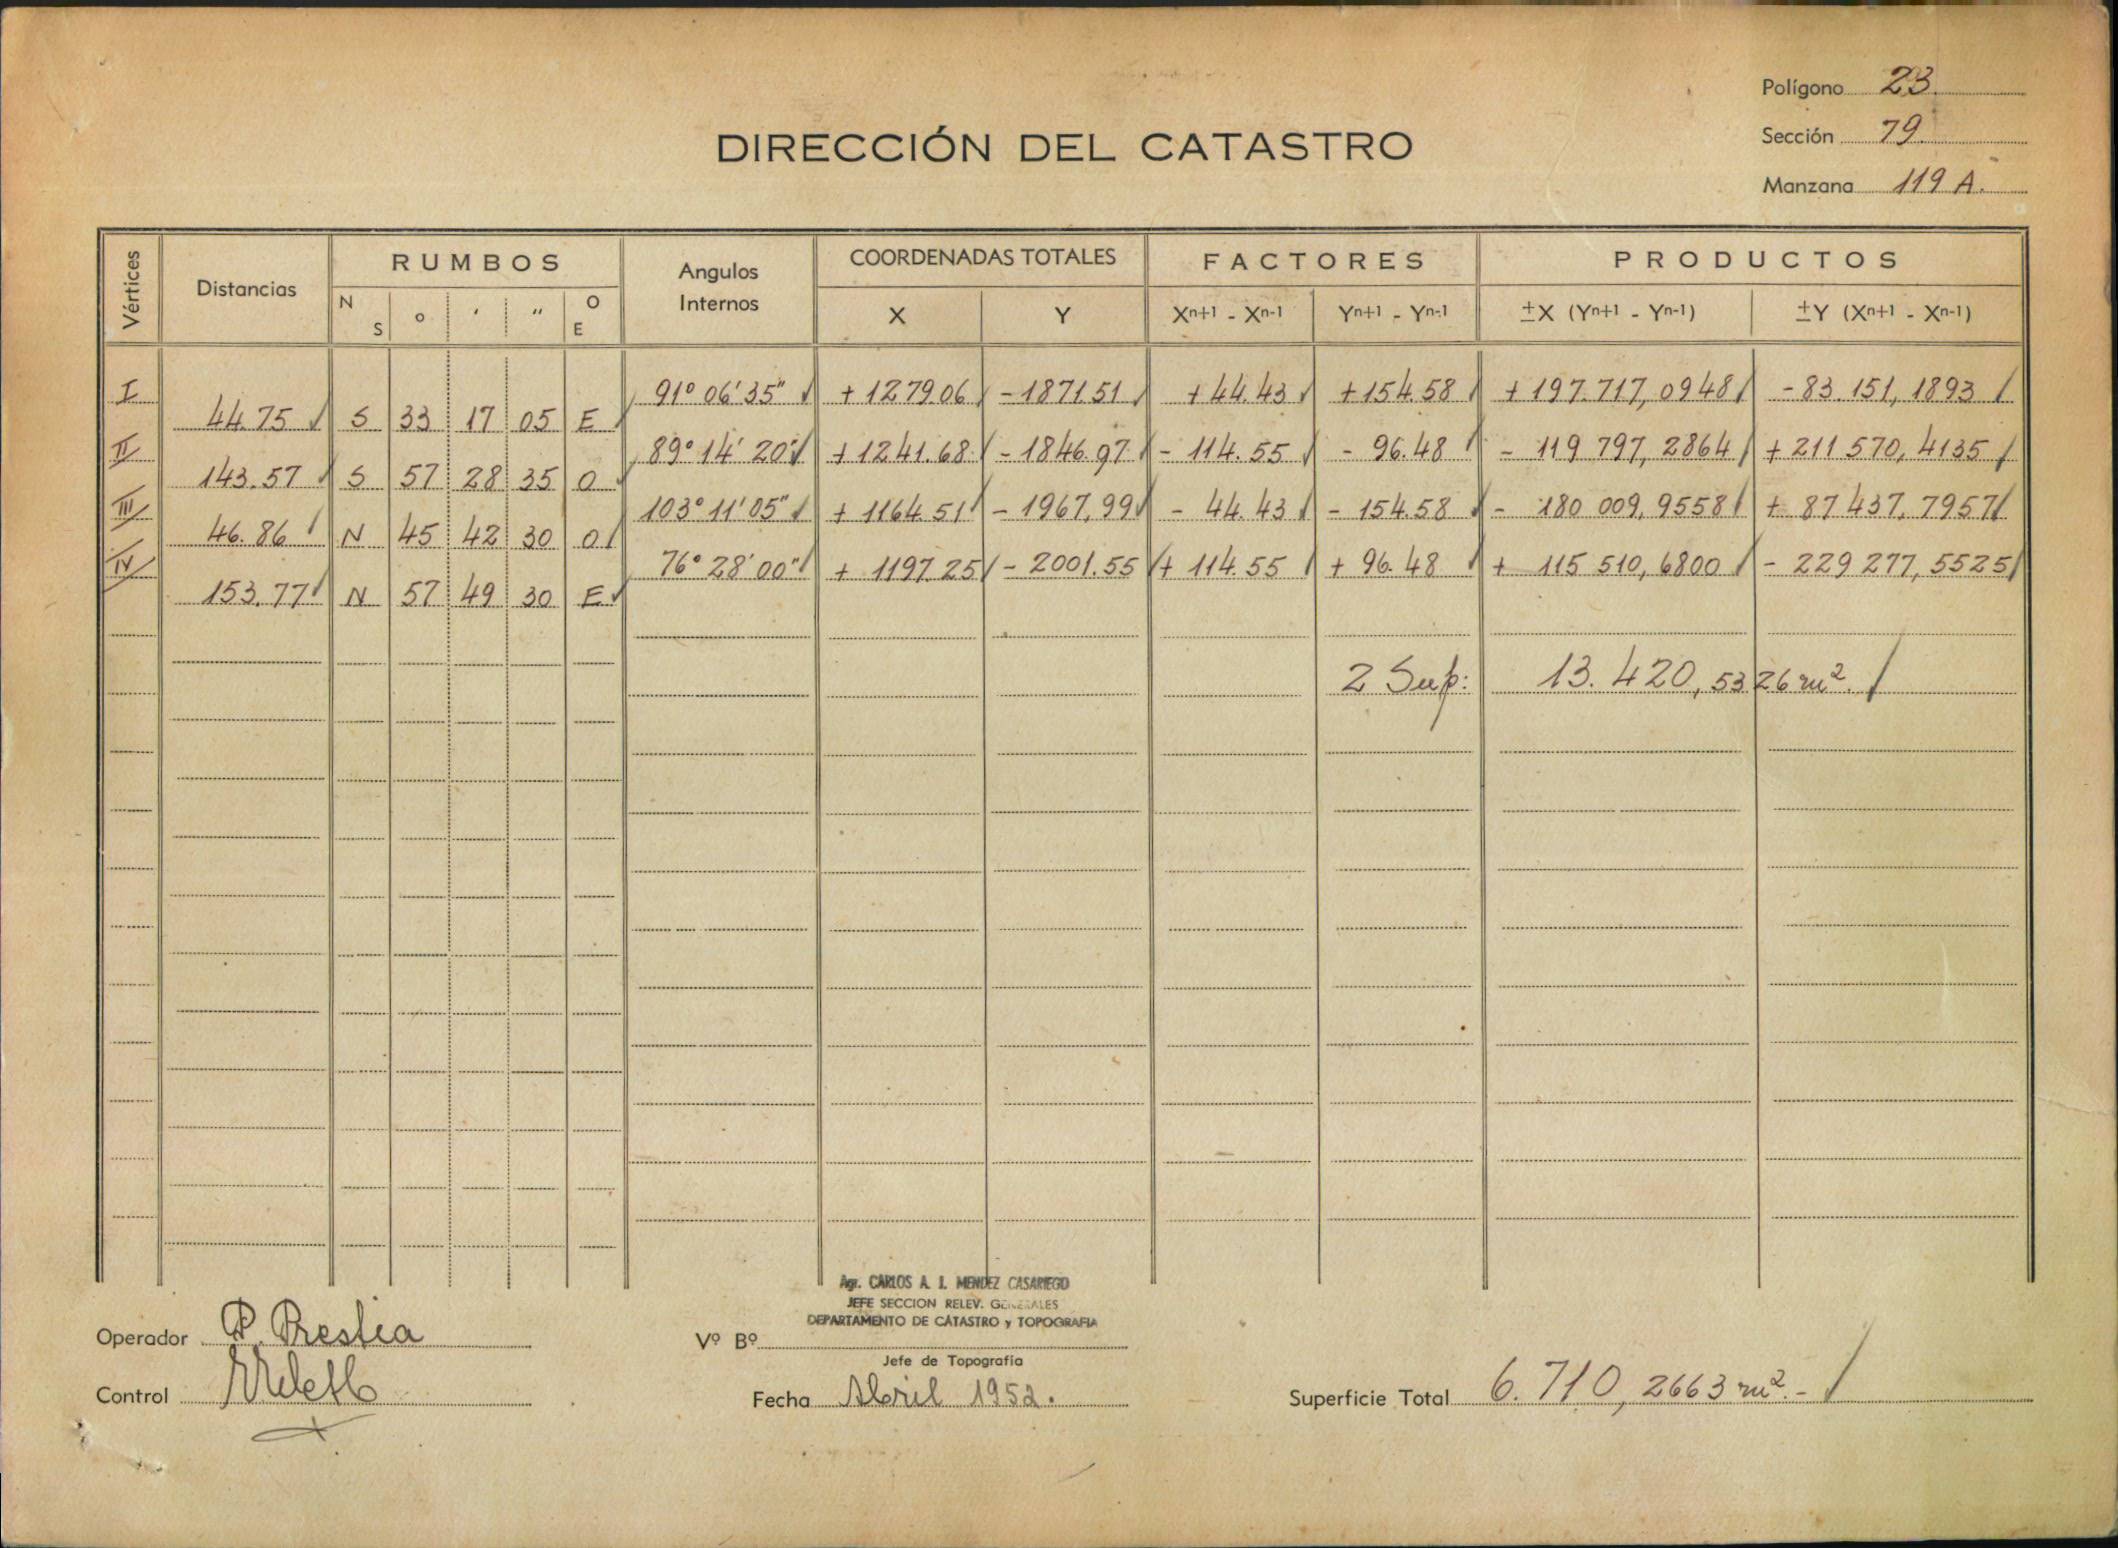 Polígono 23.
Sección 79.
Manzana 119 A.
DIRECCIÓN DEL CATASTRO
Vértices Distancias RUMBOS Angulos Internos COORDENADAS TOTALES FACTORES PRODUCTOS
N S o ' " O E X Y Xn+1 - Xn-1 Yn+1 - Yn-1 ±X (Yn+1 - Yn-1) ±Y (Xn+1 - Xn-1)
I 91° 06' 35" +1279.06 -1871.51 +44.43 +154.58 +197.717,0948 -83.151,1893
44.75 S 33 17 05 E
II 89° 14' 20" +1241.68 -1846.97 -114.55 -96.48 -119 797,2864 +211 570,4135
143.57 S 57 28 35 O
III 103° 11' 05" +1164.51 -1967,99 -44.43 -154.58 -180 009,9558 +87 437,7957
46.86 N 45 42 30 O
IV 76° 28' 00" +1197.25 -2001.55 +114.55 +96.48 +115 510,6800 -229 277,5525
153.77 N 57 49 30 E
2 Sup: 13.420,5326 m²
Agr. CARLOS A. I. MENDEZ CASARIEGO
JEFE SECCION RELEV. GENERALES
DEPARTAMENTO DE CATASTRO y TOPOGRAFIA
Operador P. Prestia
Vº Bº
Jefe de Topografía
Control
Fecha Abril 1952.
Superficie Total 6.710,2663 m².-